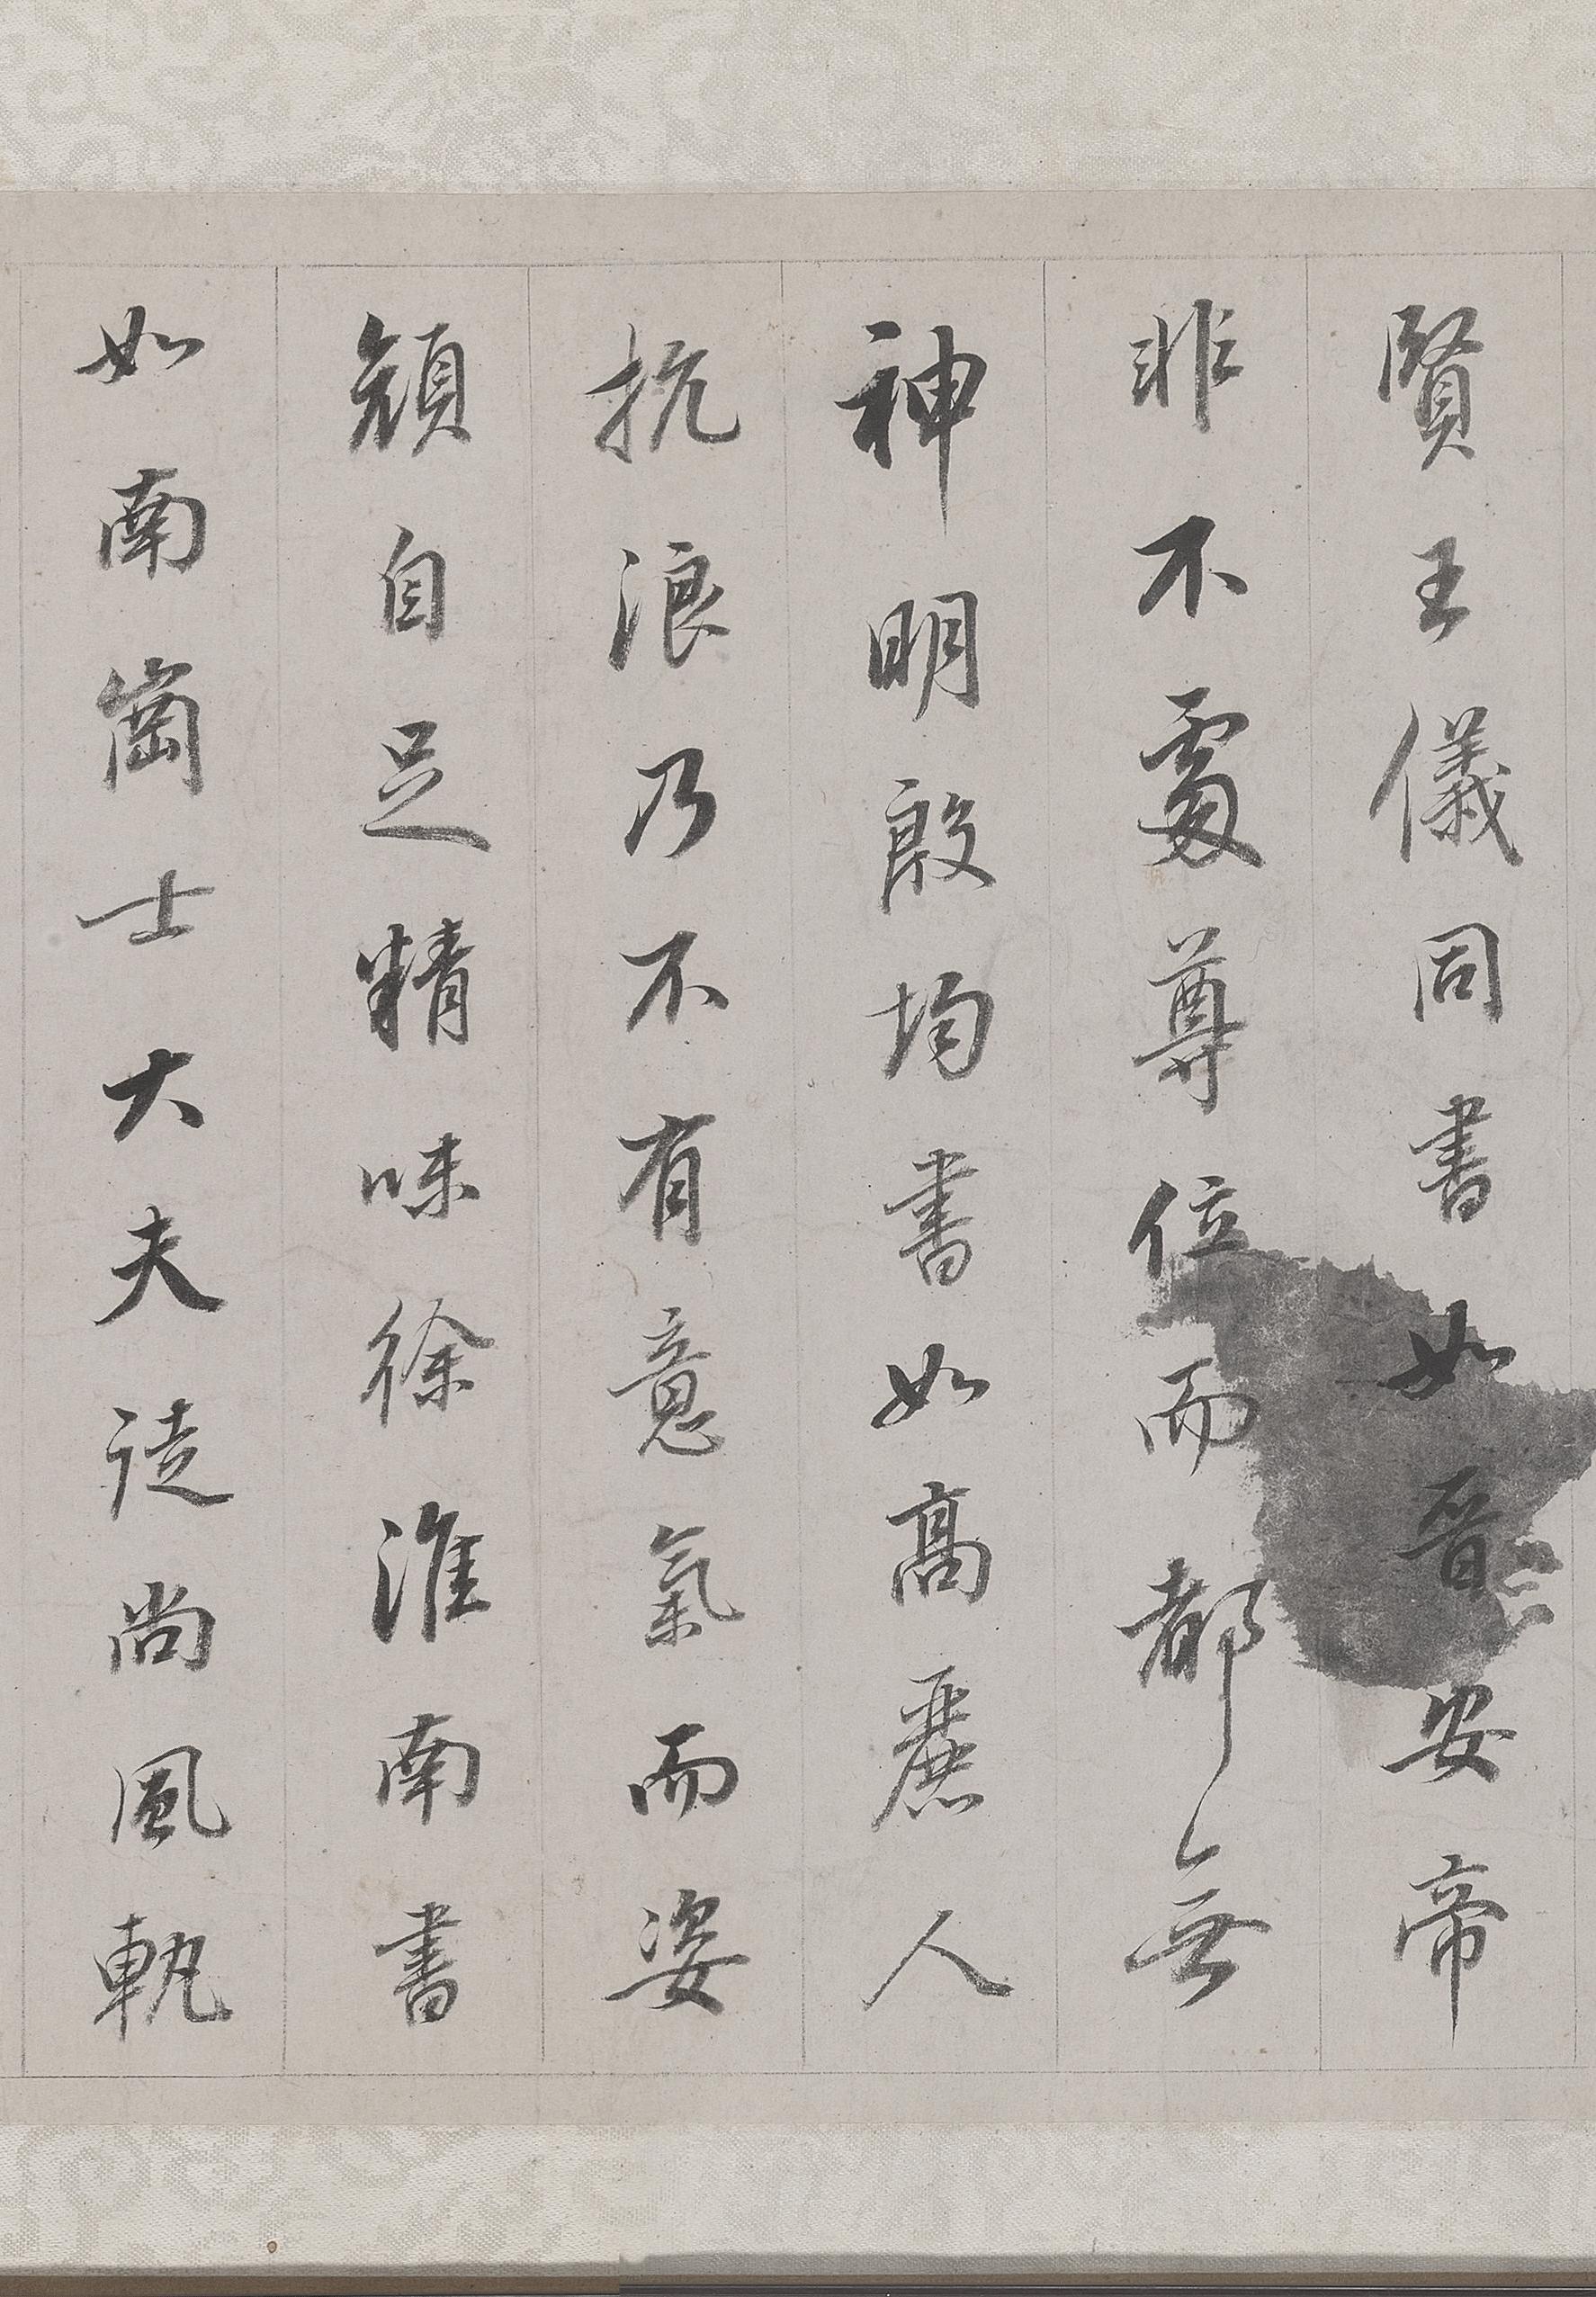 賢王儀同書如晉安帝
非不處尊位而都無
神明殷均書如高麗人
抗浪乃不有意氣而姿
顏自足精味徐淮南書
如南崗士大夫徒尚風軌